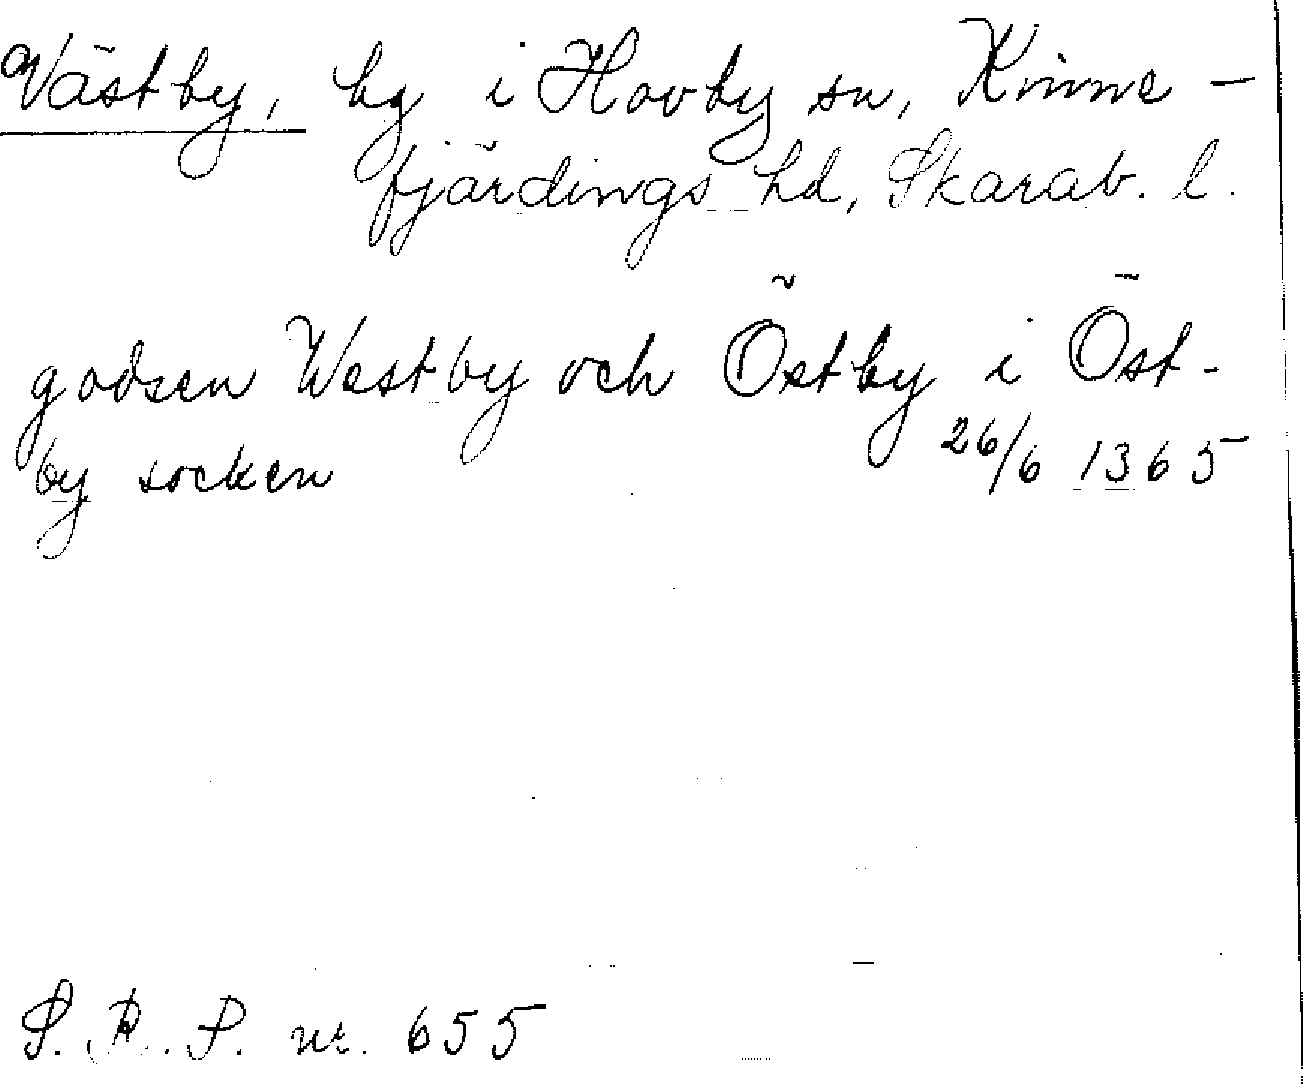 Västby, by i Hovby sn, Kinne-
fjärdings hd, Skarab. l.
godsen Westby och Östby i Öst-
by socken 26/6 1365
S. R. P. nr. 655